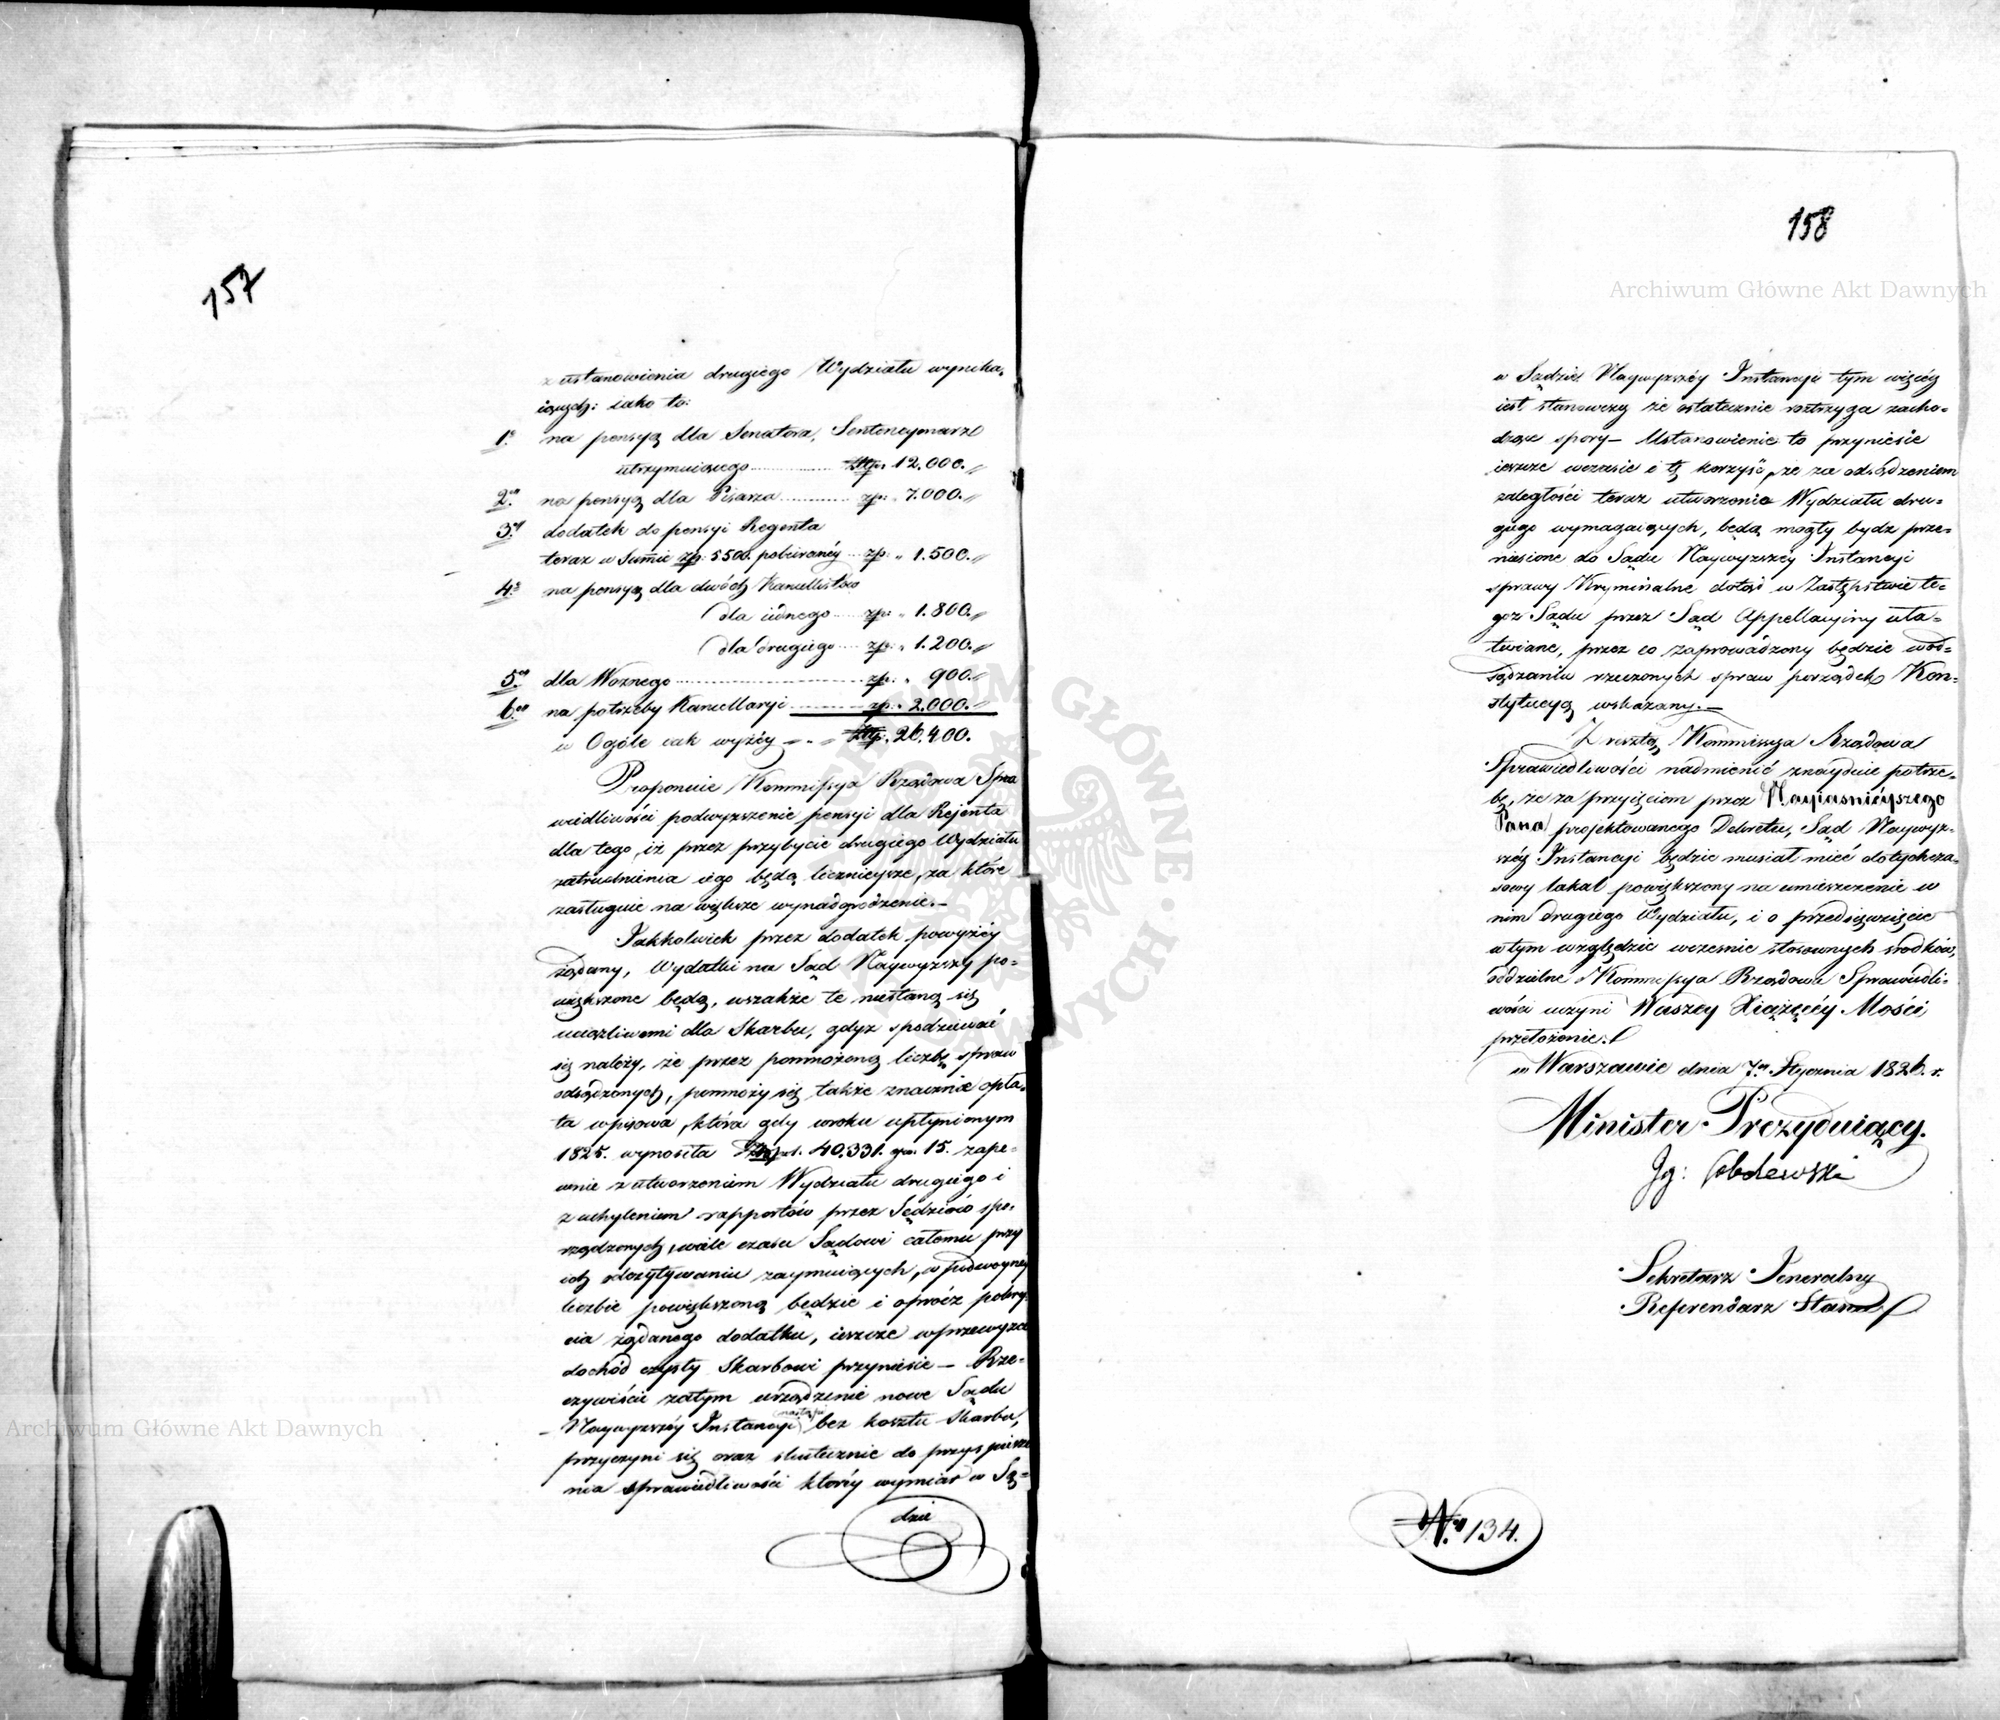 157
z ustanowienia drugiego Wydziału wynika,
iących: iako to:
1º na pensyą dla Senatora, Sentencyonarza
utrzymuiącego ........ Złtp: 12.000.
2do na pensyą dla Pisarza ........ zp: 7.000.
3o dodatek do pensyi Regenta
teraz w Summie zp: 5500. pobieranéy ... zp: 1.500.
4o na pensyą dla dwóch Kancellistów
dla iednego ..... zp: 1.800.
dla drugiego ..... zp: 1.200.
5o dla Woznego ........ zp: 900.
6o na potrzeby Kancellaryi ........ zp: 2.000.
w Ogóle iak wyżéy — Złtp: 26,400.
Proponuie Kommissya Rządowa Spra
wiedliwości podwyższenie pensyi dla Rejenta
dla tego, iż przez przybycie drugiego Wydziału
zatrudnienia iego będą licznieysze, za które
zasługuie na większe wynadgrodzenie.—
Jakkolwiek przez dodatek powyżéy
żądany, Wydatki na Sąd Naywyższy po-
większone będą, wszakże te niestaną się
uciążliwemi dla Skarbu, gdyż spodziewać
się należy, że przez pomnożoną liczbę spraw
odsądzonych, pomnoży się także znacznie opła-
ta wpisowa, która gdy wroku upłynionym
1825. wynosiła Złtpol. 40,331. gr. 15. zape-
wnie z utworzeniem Wydziału drugiego i
z uchyleniem rapportów przez Sędziów spo-
rządzonych, wiele czasu Sądowi całemu przy
ich odczytywaniu zaymuiących, w podwoyney
liczbie powiększoną będzie i oprócz pokry-
cia żądanego dodatku, ieszcze wprzewyżce
dochód czysty Skarbowi przyniesie — Rze-
czywiście zatym urządzenie nowe Sądu
Naywyższéy Instancyi nastąpi bez kosztu Skarbu,
przyczyni się oraz skutecznie do przyspiesze
nia sprawiedliwości któréy wymiar w Są-
dzie
158
w Sądzie Naywyższéy Instancyi tym więcéy
iest stanowczy że ostatecznie roztrzyga zacho-
dzące spory — Ustanowienie to przyniesie
ieszcze wczasie i tę korzyść, że za odsądzeniem
zaległości teraz utworzenia Wydziału dru-
giego wymagaiących, będą mogły bydz prze-
niesione do Sądu Naywyższéy Instancyi
sprawy Kryminalne dotąd w Zastępstwie te-
goz Sądu przez Sąd Appellacyiny uła-
twiane, przez co zaprowadzony będzie wod-
sądzaniu rzeczonych spraw porządek Kon-
stytucyą wskazany.—
Z resztą Kommissya Rządowa
Sprawiedliwości nadmienić znayduie potrze-
bę, że za przyięciem przez Nayiaśnieyszego
Pana projektowanego Dekretu, Sąd Naywyż-
széy Instancyi będzie musiał mieć dotychcza-
sowy lokal powiększony na umieszczenie w
nim drugiego Wydziału, i o przedsięwzięcie
w tym względzie wczesnie stosownych srodków,
oddzielne Kommissya Rządowa Sprawiedli-
wości uczyni Waszey Xiążęcéy Mości
przełożenie.
w Warszawie dnia 7go Stycznia 1826. r.
Minister Prezyduiący.
Jg: Sobolewski
Sekretarz Jeneralny
Referendarz Stanu
No 134.
Archiwum Główne Akt Dawnych
Archiwum Główne Akt Dawnych